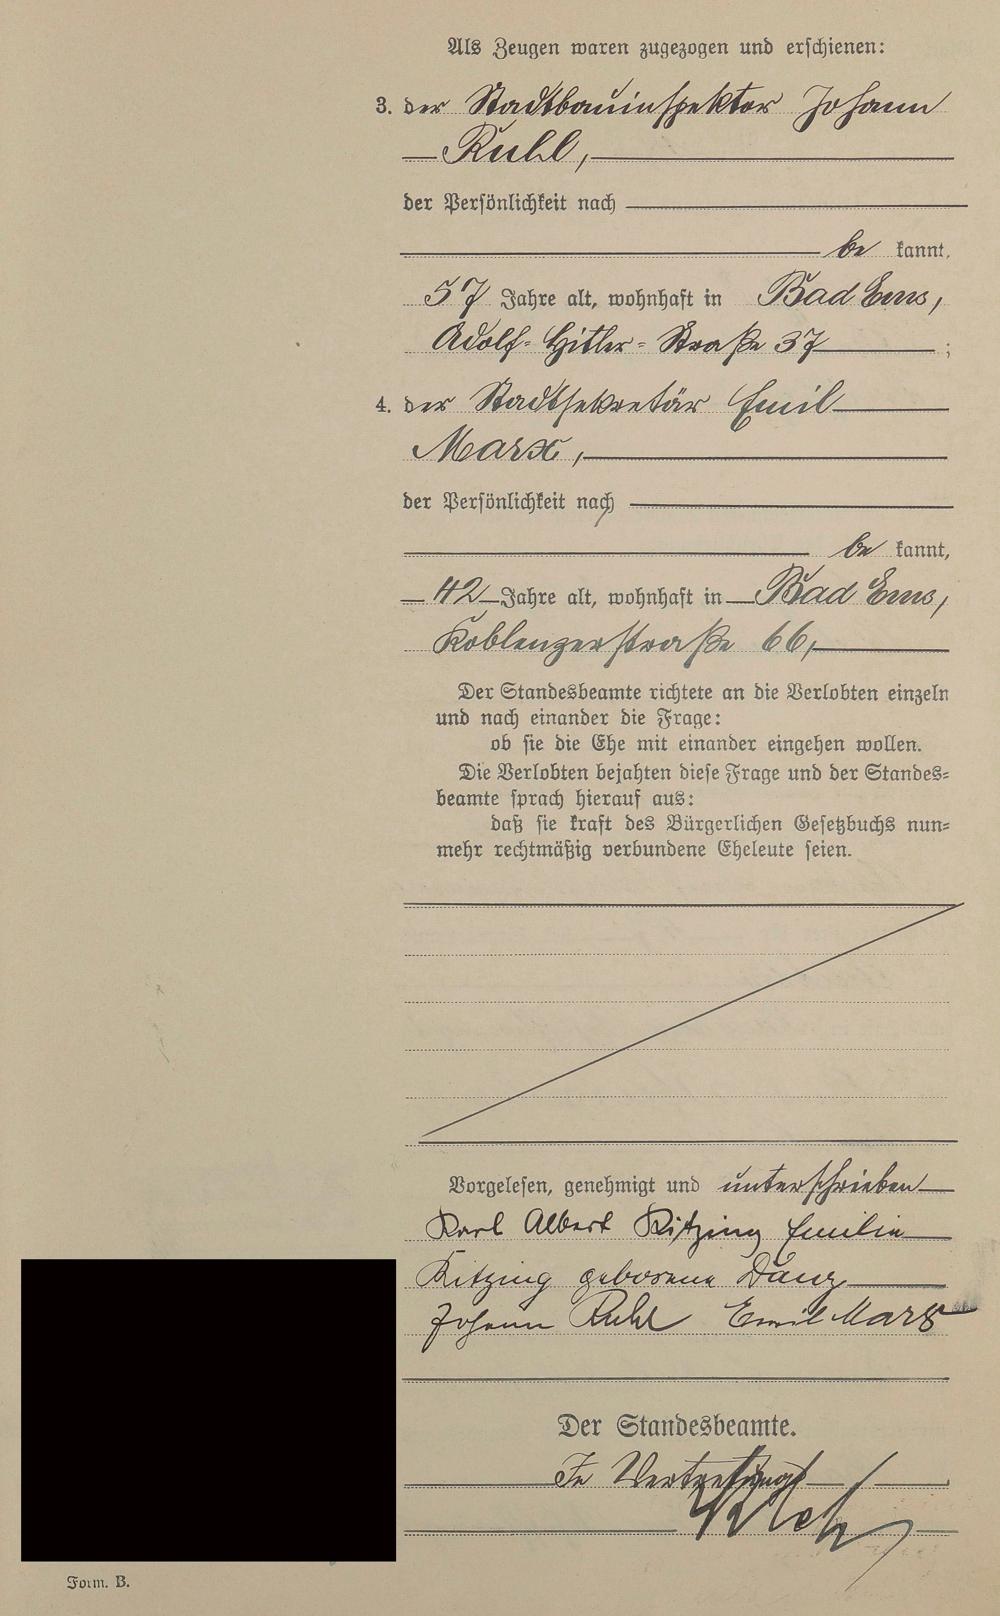 Als Zeugen waren zugezogen und erschienen:
3. der Stadtbauinspektor Johann
Ruhl,
der Persönlichkeit nach
be kannt,
57 Jahre alt, wohnhaft in Bad Ems,
Adolf-Hitler-Straße 37 ;
4. der Stadtsekretär Emil
Marx,
der Persönlichkeit nach
be kannt,
42 Jahre alt, wohnhaft in Bad Ems,
Koblenzerstraße 66,
Der Standesbeamte richtete an die Verlobten einzeln
und nach einander die Frage:
ob sie die Ehe mit einander eingehen wollen.
Die Verlobten bejahten diese Frage und der Standes-
beamte sprach hierauf aus:
daß sie kraft des Bürgerlichen Gesetzbuchs nun-
mehr rechtmäßig verbundene Eheleute seien.
Vorgelesen, genehmigt und unterschrieben
Karl Albert Kitzing Emilie
Kitzing geborene Danz
Johann Ruhl Emil Marx
Der Standesbeamte.
In Vertretung
Form. B.